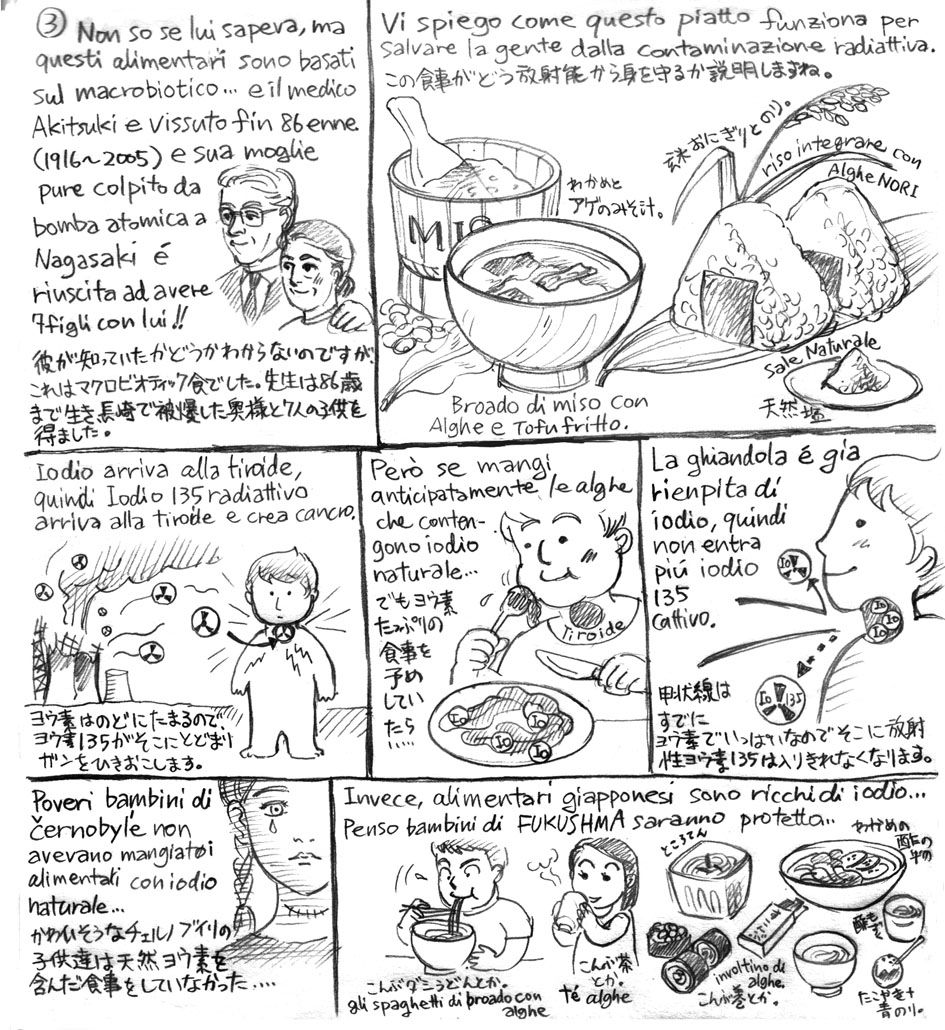 ③ Non so se lui sapeva, ma
questi alimentari sono basati
sul macrobiotico... e il medico
Akitsuki e vissuto fin 86enne.
(1916~2005) e sua moglie
pure colpito da
bomba atomica a
Nagasaki é
riuscita ad avere
7figli con lui!!
彼が知っていたかどうかわからないのですが、
これはマクロビオティック食でした。先生は86歳
まで生き長崎で被爆した奥様と7人の子供を
得ました。
Vi spiego come questo piatto funziona per
salvare la gente dalla contaminazione radiattiva.
この食事がどう放射能から身を守るか説明しますね。
MISO
わかめと
アゲのみそ汁。
玄米おにぎりとのり。
riso integrare con
Alghe NORI
Sale Naturale
天然塩
Broado di miso con
Alghe e Tofu fritto.
Iodio arriva alla tiroide,
quindi Iodio 135 radiattivo
arriva alla tiroide e crea cancro.
ヨウ素はのどにたまるので、
ヨウ素135がそこにとどまり
ガンをひきおこします。
Però se mangi
anticipatamente le alghe
che conten-
gono iodio
naturale...
でもヨウ素
たっぷりの
食事を
予め
してい
たら
.....
Tiroide
Io
Io
Io
Io
La ghiandola é giá
rienpita di
iodio, quindi
non entra
piú iodio
135
cattivo.
Io
Io
Io
Io
Io 135
甲状線は
すでに
ヨウ素でいっぱいなのでそこに放射
性ヨウ素135は入りきれなくなります。
Poveri bambini di
černobyle non
avevano mangiatoi
alimentali con iodio
naturale...
かわいそうなチェルノブイリの
子供達は天然ヨウ素を
含んだ食事をしていなかった....
Invece, alimentari giapponesi sono ricchi di iodio...
Penso bambini di FUKUSHMA saranno protetto...
こんぶダシうどんとか。
gli spaghetti di broado con
alghe
こんぶ茶
とか。
té alghe
ところてん
わかめの
酢の
もの
酢もずく
involtino di
alghe.
こんぶ巻とか。
たこやき+
青のり。